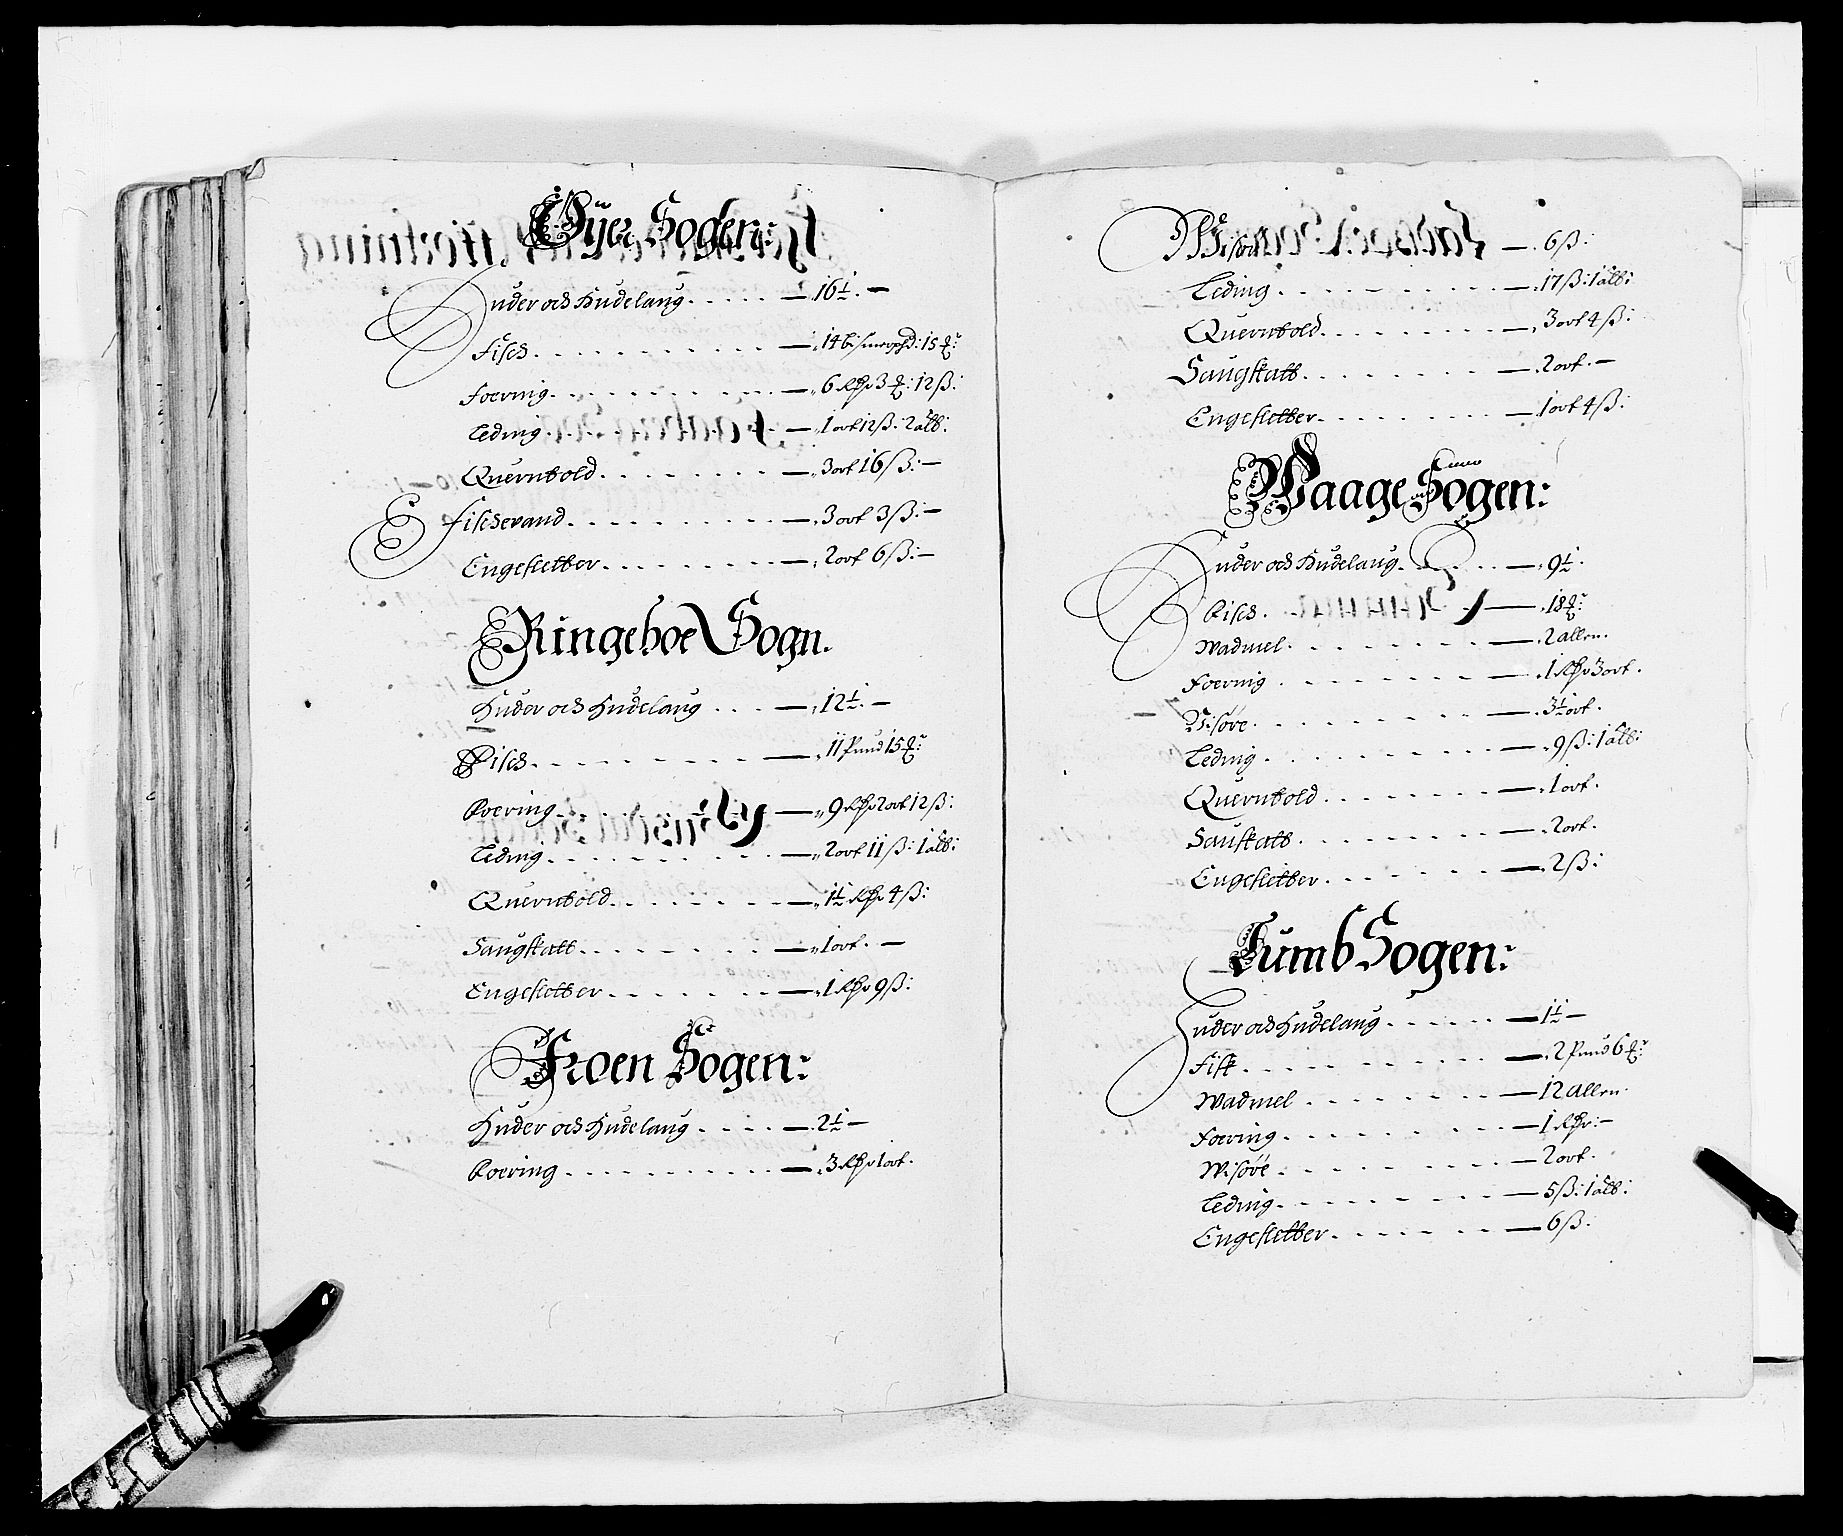 Öÿer Sogen:
Huder och Hudelaug. . . . . — 16½. —
Fisch. . . . . . . . . . . — 14 bismerpd: 15 ℔:
Foering. . . . . . . . . . — 6 Rdr 3 ℔: 12 ß:
Leding. . . . . . . . . — 1 ort 12 ß: 2 alb:
Quernbold. . . . . . . . — 3 ort 16 ß: —
Fischevand. . . . . . . . . — 3 ort 3 ß: —
Engesletter. . . . . . . . — 2 ort 6 ß: —
Ringeboe Sogn.
Huder och Hudelaug . . . — 12½. —
Fisch. . . . . . . . . — 11 Pund 15 ℔:
Foering. . . . . . . . — 9 Rdr 2 ort 12 ß:
Leding. . . . . . . . . — 2 ort 11 ß: 1 alb:
Quernbold. . . . . . . — 1½ Rdr 4 ß:
Saugskatt. . . . . . . . — 1 ort. —
Engesletter. . . . . . . — 1 Rdr 9 ß:
Froen Sogen:
Huder och Hudelaug . . . . — 2½ —
Foering. . . . . . . . . . — 3 Rdr 1 ort.
Wisöre — 6 ß:
Leding. . . . . . . . — 17 ß: 1 alb:
Quernbold. . . . . . . . — 3 ort 4 ß:
Saugskatt. . . . . . . . — 2 ort. —
Engesletter. . . . . . . — 1 ort 4 ß:
Waage Sogen:
Huder och Hudelaug. . . . — 9½.
Fisch. — 18 ℔:
Wadmel. . . . . . . . — 2 allen.
Foering . . . . . . . . — 1 Rdr 3 ort.
Visöre. . . . . . . . . — 3½ ort.
Leding. . . . . . . . . — 9 ß: 1 alb:
Quernbold. . . . . . . — 1 ort.
Sauskatt. . . . . . . . — 2 ort.
Engesletter. . . . . . . — 2 ß:
Lumb Sogen:
Huder och Hudelaug. . . . . . — 1½ —
Fisk. . . . . . . . . — 2 Pund 6 ℔:
Wadmel . . . . . . . — 12 allen.
Foering. . . . . . . . — 1 Rdr: —
Wisöre . . . . . . . . — 2 ort.
Leding. . . . . . . . . — 5 ß: 1 alb:
Engesletter. . . . . . . — 6 ß.